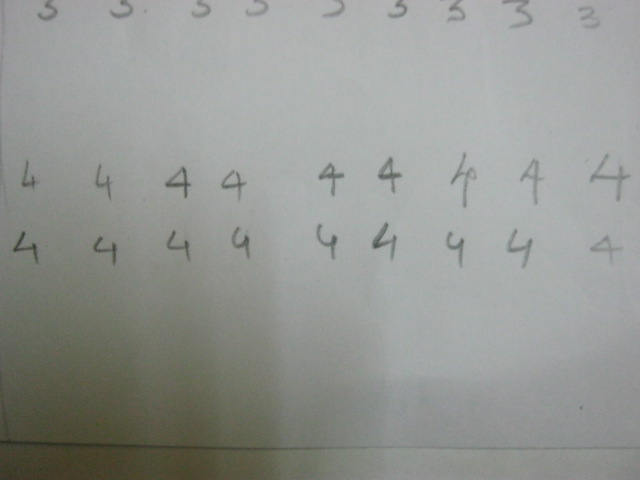 3 3 3 3 3 3 3 3 3
4 4 4 4 4 4 4 4 4
4 4 4 4 4 4 4 4 4